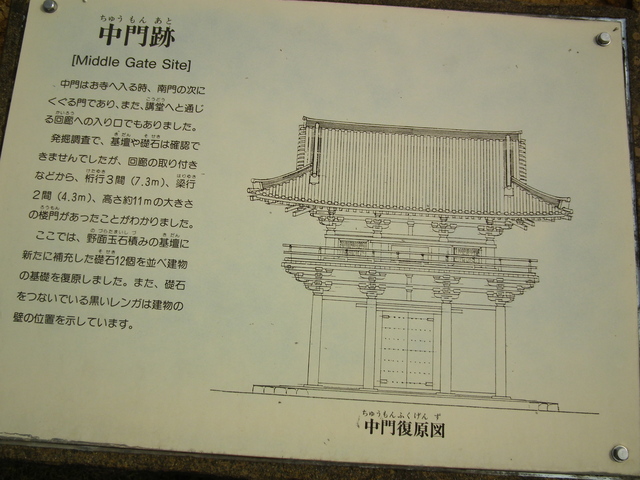 ちゅうもんあと
中門跡
[Middle Gate Site]
中門はお寺へ入る時、南門の次に
くぐる門であり、また、講堂へと通じ
る回廊への入り口でもありました。
発掘調査で、基壇や礎石は確認で
きませんでしたが、回廊の取り付き
などから、桁行3間(7.3m)、梁行
2間(4.3m)、高さ約11mの大きさ
の楼門があったことがわかりました。
ここでは、野面玉石積みの基壇に
新たに補充した礎石12個を並べ建物
の基礎を復原しました。また、礎石
をつないでいる黒いレンガは建物の
壁の位置を示しています。
ちゅうもんふくげんず
中門復原図